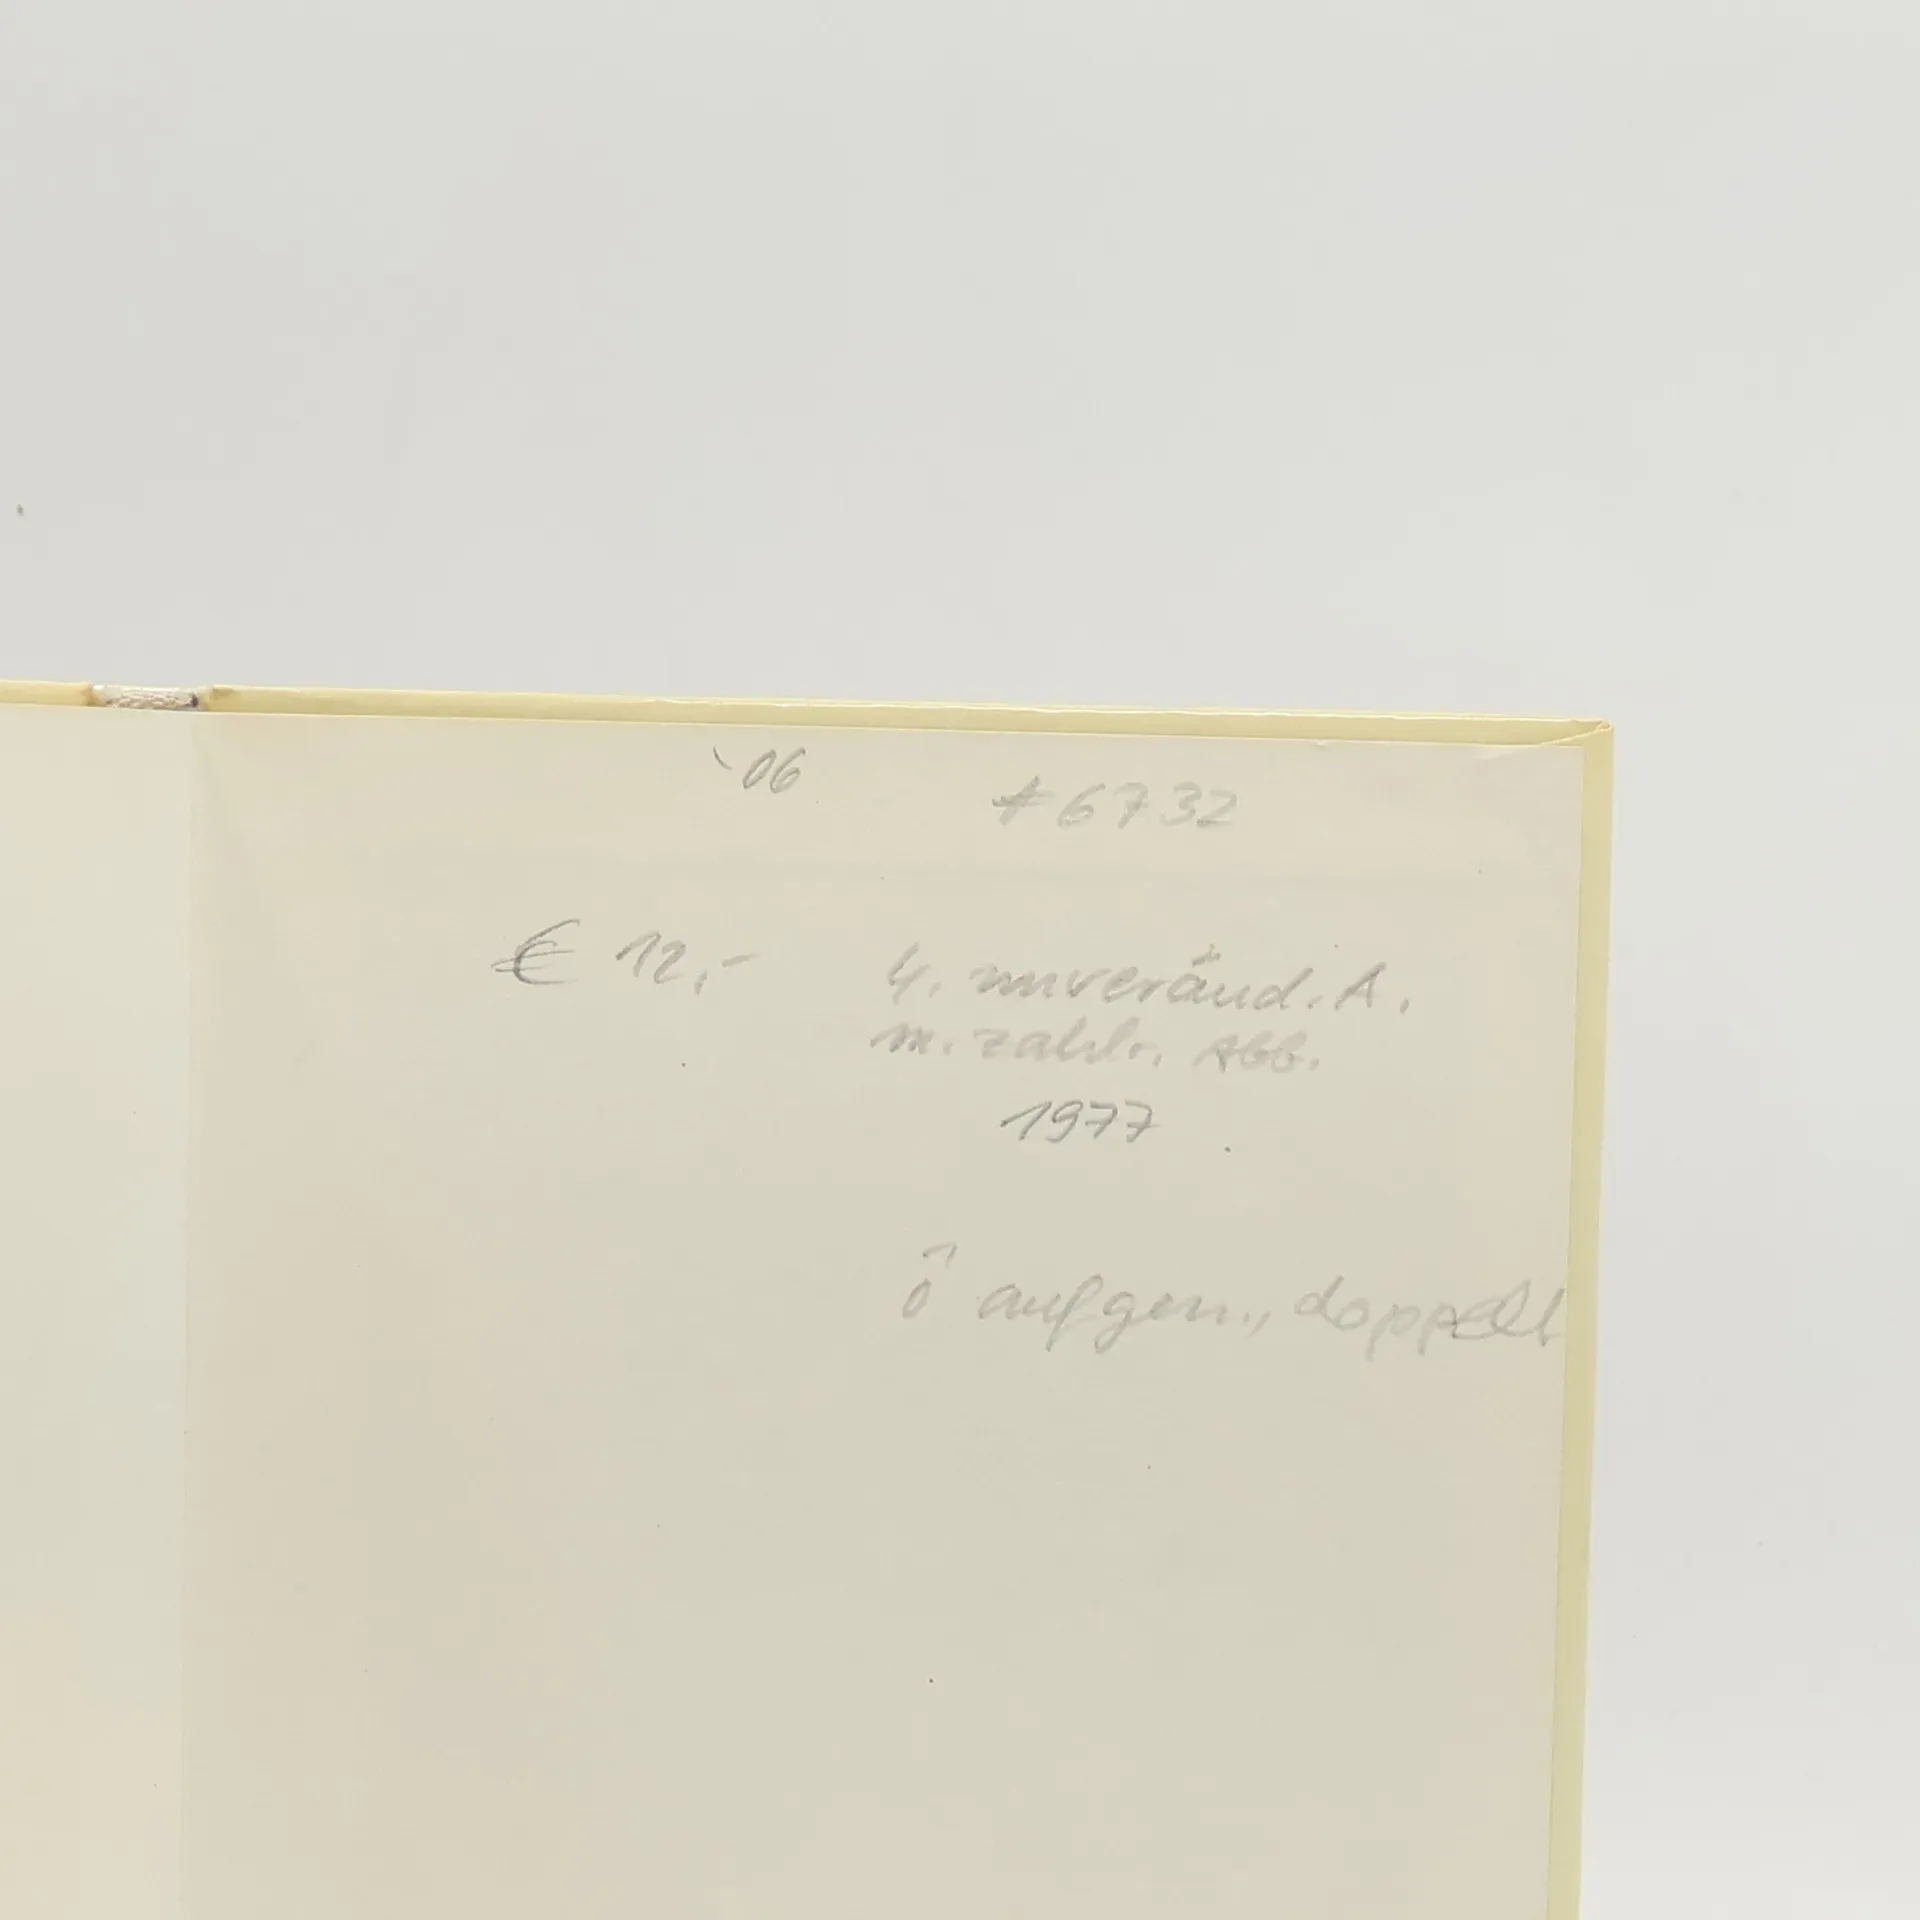 '06
#6732
€ 12,-
4. unveränd. A.
m. zahlr. Abb.
1977
aufgen., doppelt